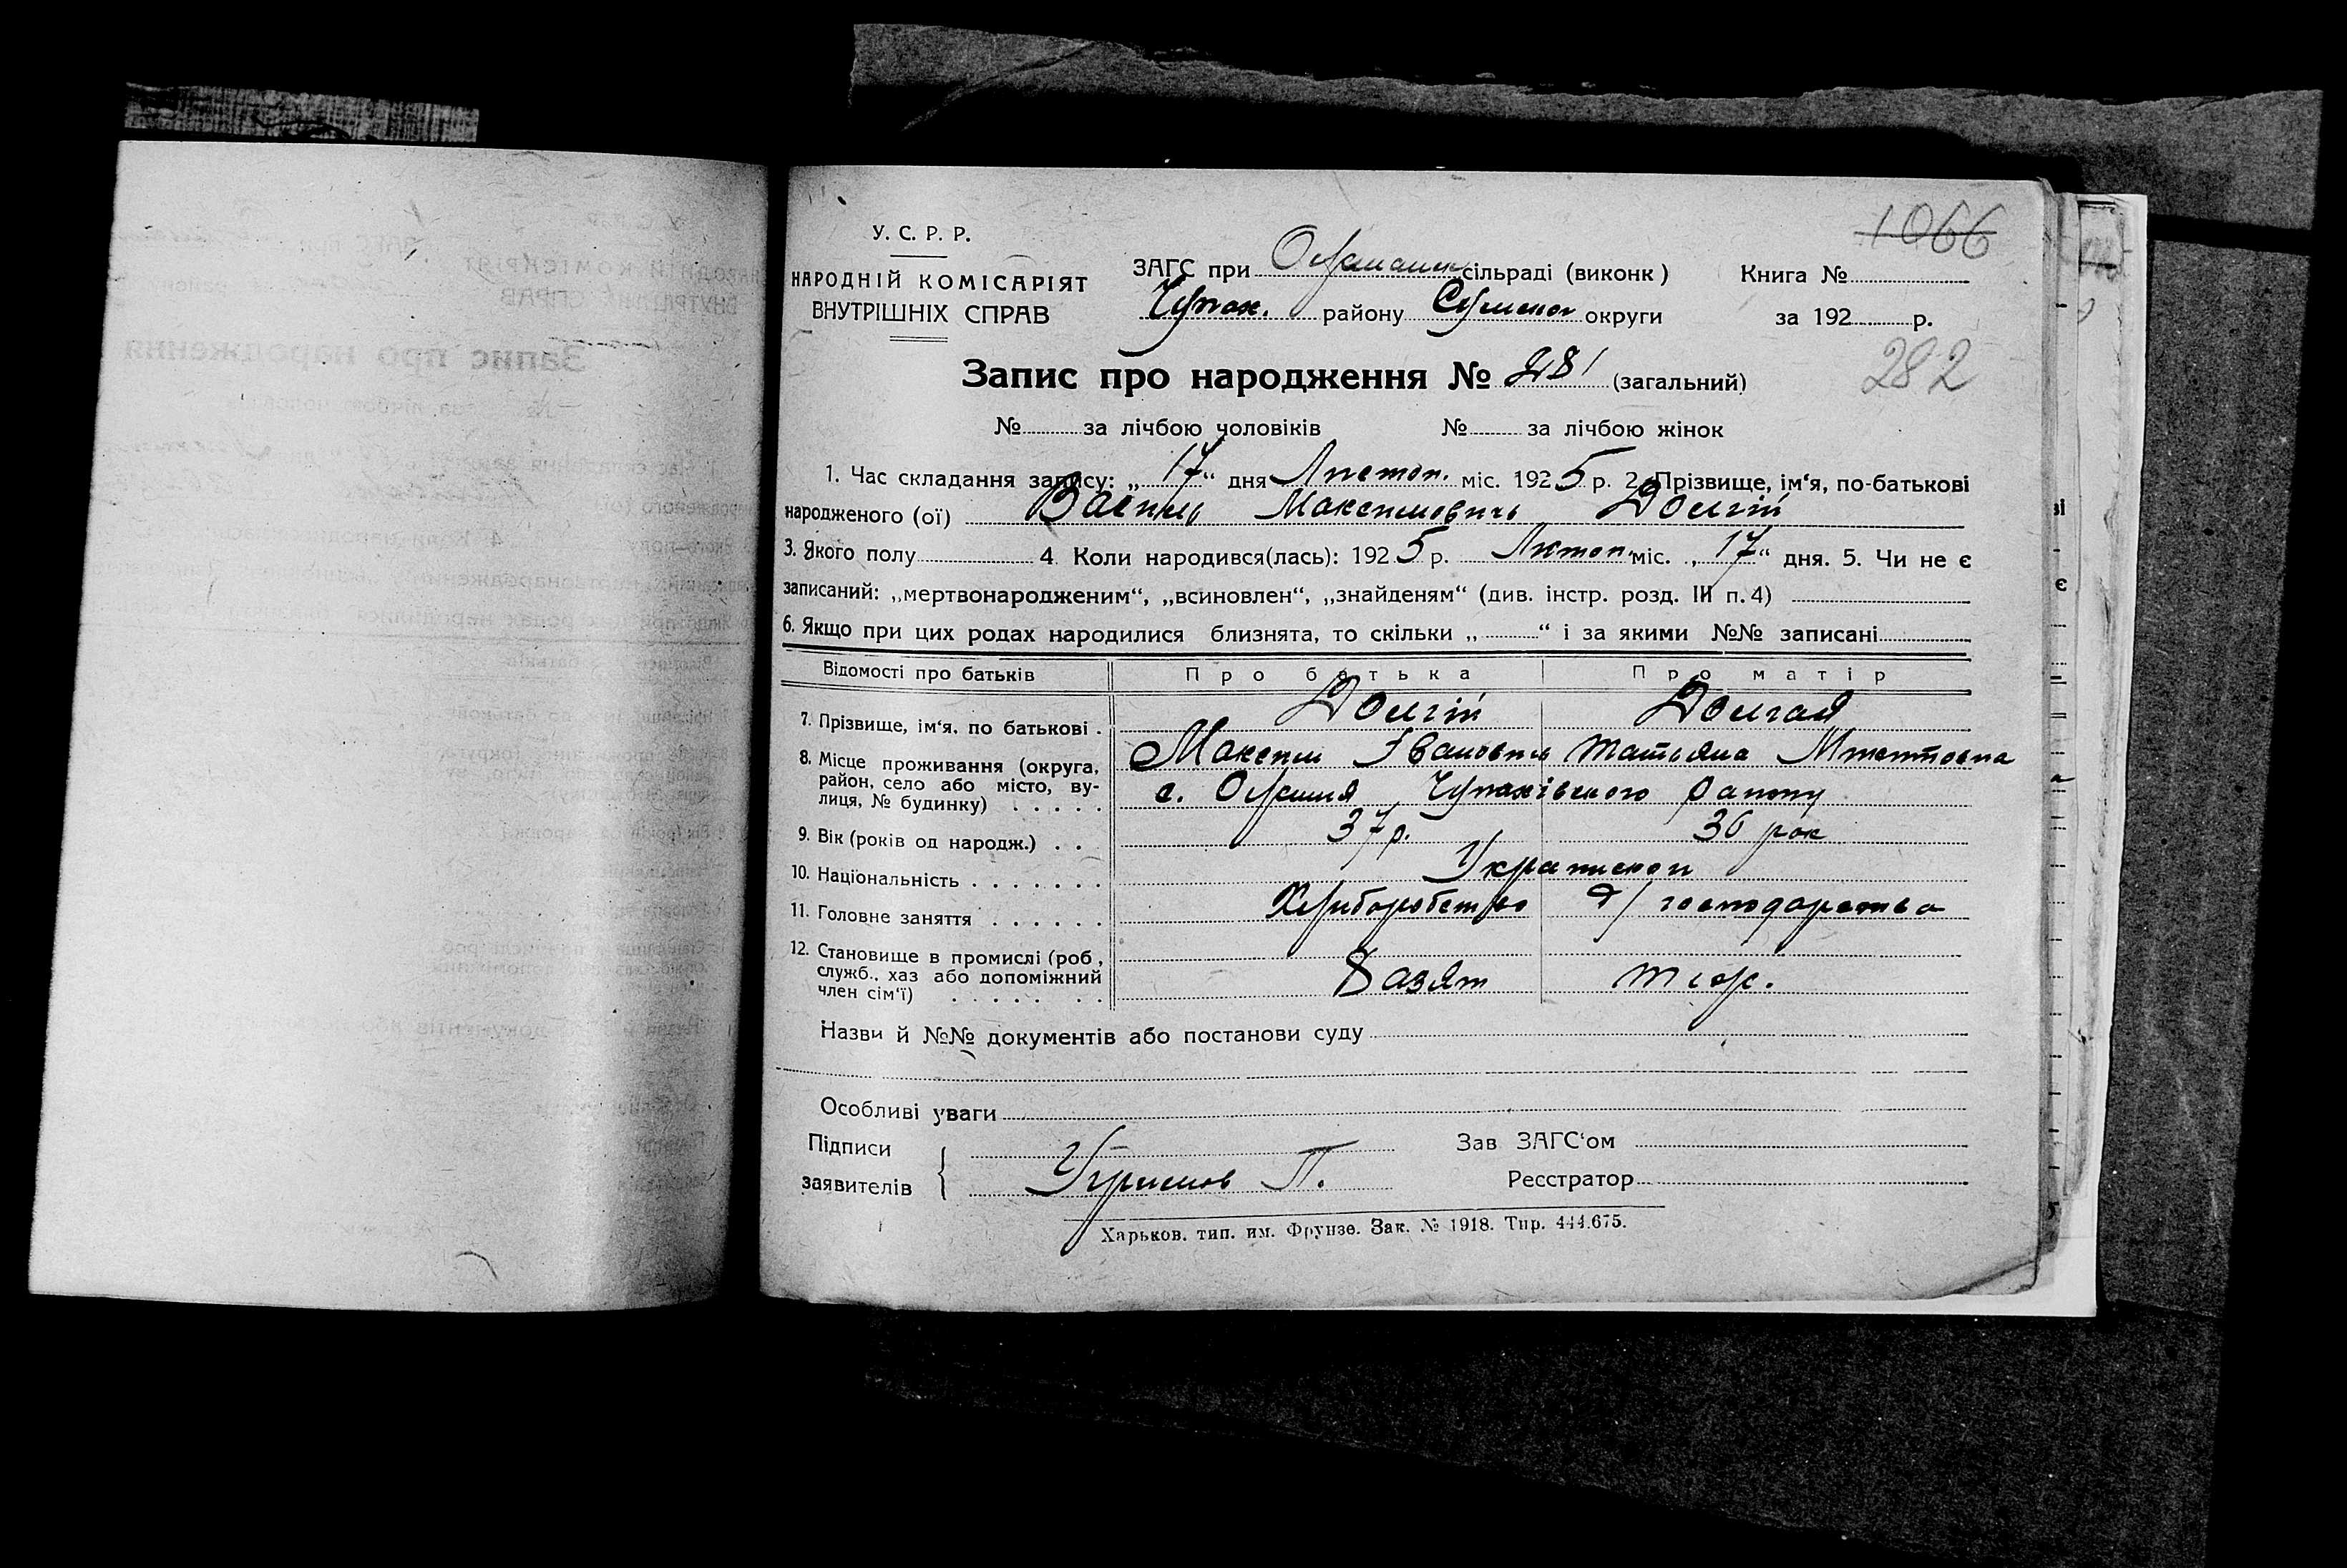 1066
У. С. Р. Р.
НАРОДНІЙ КОМІСАРІЯТ
ВНУТРІШНІХ СПРАВ
ЗАГС при сільраді (виконк)
Книга №
Чупах. району Сумской округи
за 192 р.
Запис про народження № 281 (загальний)
282
№ за лічбою чоловіків № за лічбою жінок
1. Час складання запису: „ 17 “ дня Листоп. міс. 1925 р. 2. Прізвище, ім‘я, по-батькові
народженого (ої) Василь Максимовичь Долгій
3. Якого полу 4. Коли народився(лась): 1925 р. міс. „ 17 “ дня. 5. Чи не є
записаний: „мертвонародженим“, „всиновлен“, „знайденям“ (див. інстр. розд. III п. 4)
6. Якщо при цих родах народилися близнята, то скільки „ “ і за якими №№ записані
Відомості про батьків Про батька Про матір
7. Прізвище, ім‘я, по батькові . Долгій Долгая
Максим Івановичь Татьяна
8. Місце проживання (округа,
район, село або місто, ву-
лиця, № будинку) . . . . . с. Чупахівского району
9. Вік (років од народж.) . . 37 р. 36 рок
10. Національність . . . . . . . Украинской
11. Головне заняття . . . . . . Хлиборобство д/ господарства
12. Становище в промислі (роб,
служб., хаз або допоміжний
член сім‘ї) . . . . . . . .
Назви й №№ документів або постанови суду
Особливі уваги
Підписи
заявителів
Зав ЗАГС‘ом
Реєстратор
Харьков. тип. им. Фрунзе. Зак. № 1918. Тир. 444.675.